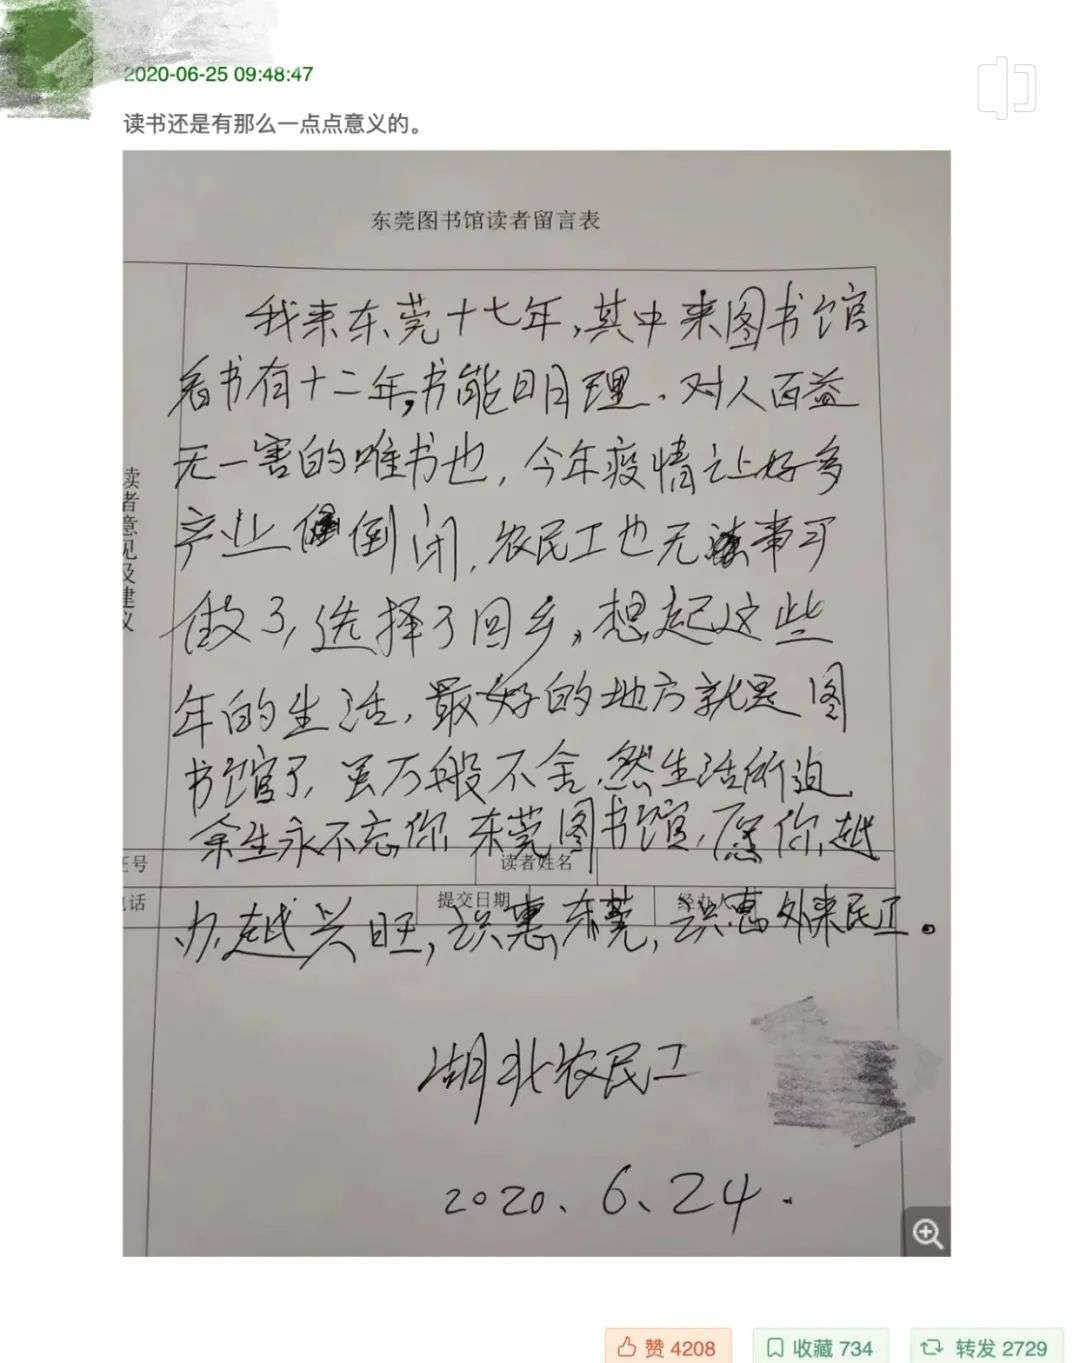 2020-06-25 09:48:47
读书还是有那么一点点意义的。
东莞图书馆读者留言表
我来东莞十七年,其中来图书馆
看书有十二年,书能明理、对人百益
无一害的唯书也,今年疫情让好多
产业倒闭,农民工也无事可
做了,选择了回乡,想起这些
年的生活,最好的地方就是图
书馆了,虽万般不舍,然生活所迫
余生永不忘你东莞图书馆,愿你越
办越兴旺,识惠东莞,识惠外来民工。
读者意见及建议
证号
读者姓名
电话
提交日期
经办人
湖北农民工
2020、6、24.
赞 4208
收藏 734
转发 2729